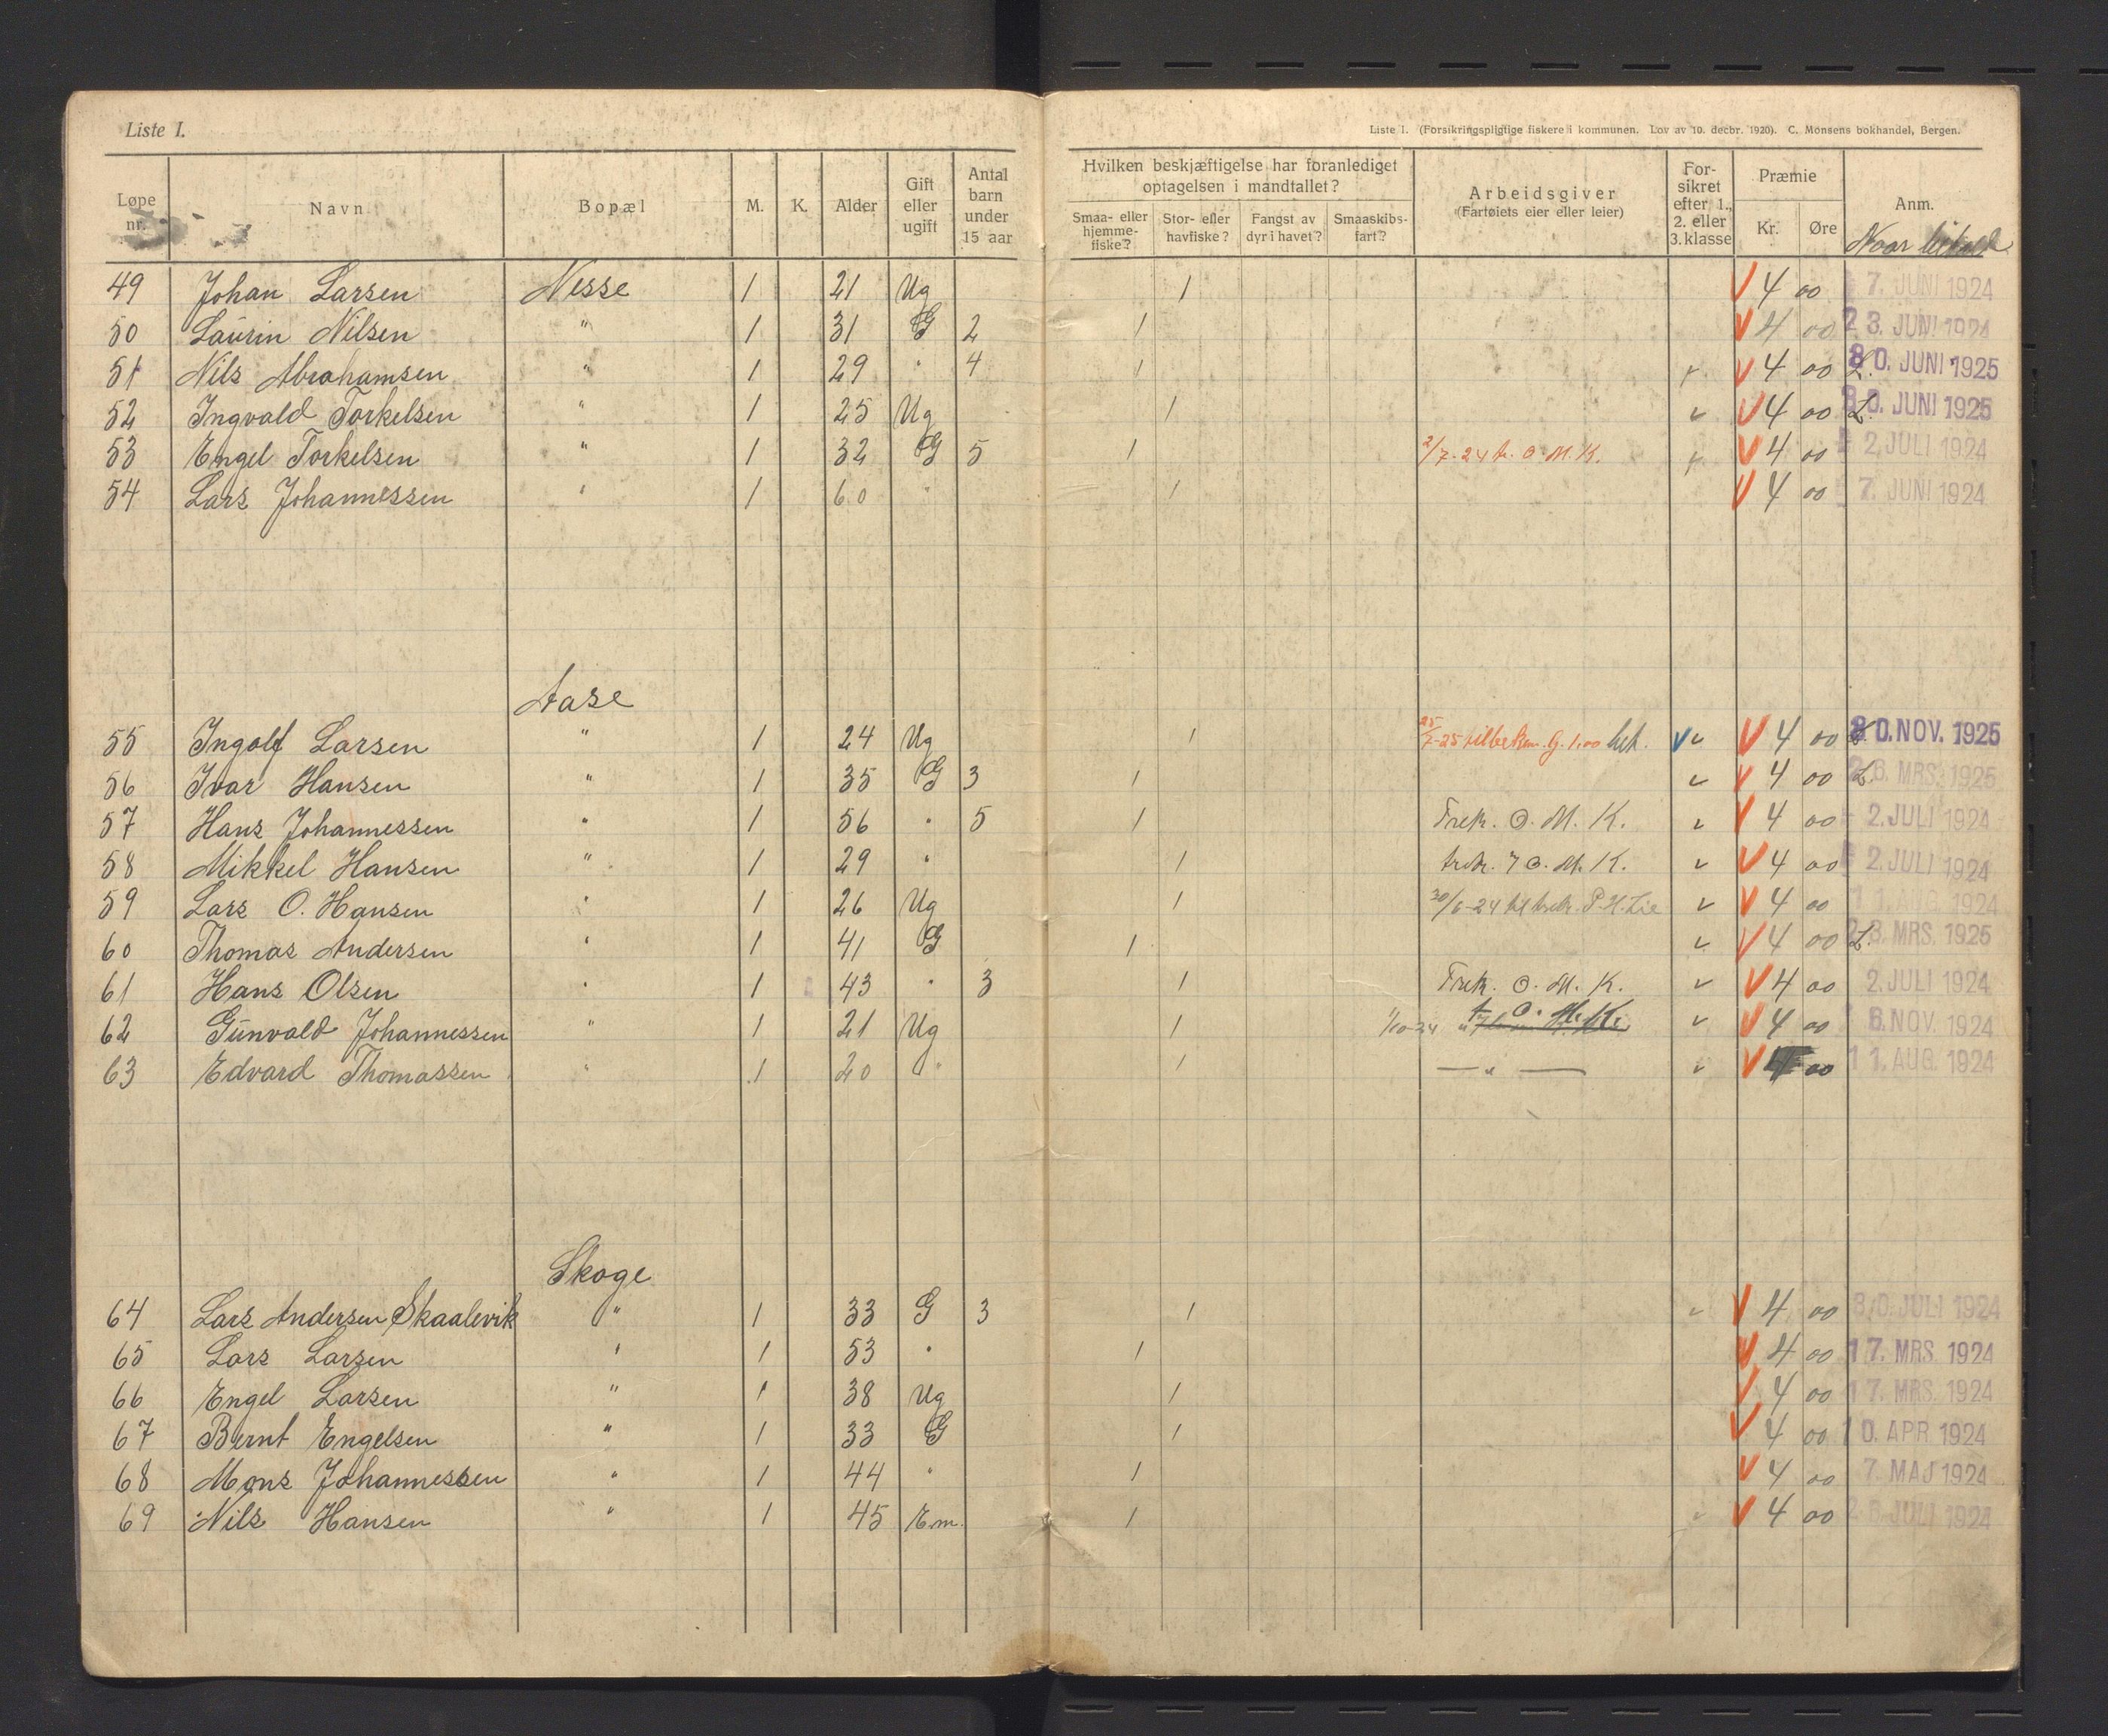 Liste I.
Liste I. (Forsikringspligtige fiskere i kommunen. Lov av 10. decbr. 1920). C. Monsens bokhandel, Bergen.
Løpe nr. Navn Bopæl M. K. Alder Gift eller ugift Antal barn under 15 aar Hvilken beskjæftigelse har foranlediget optagelsen i mandtallet? Smaa- eller hjemme-fiske? Stor- eller havfiske? Fangst av dyr i havet? Smaaskibs-fart? Arbeidsgiver (Fartøiets eier eller leier) For-sikret efter 1., 2. eller 3. klasse Præmie Kr. Øre Anm.
Naar betalt
49 Johan Larsen Nesse 1 21 Ug 1 V 4 00 7. JUNI 1924
50 Laurin Nilsen " 1 31 G 2 1 V 4 00 23. JUNI 1924
51 Nils Abrahamsen " 1 29 " 4 1 V 4 00 L. 30. JUNI 1925
52 Ingvald Torkelsen " 1 25 Ug 1 V 4 00 L. 30. JUNI 1925
53 Engel Torkelsen " 1 32 G 5 1 2/7-24 tr. O. M. K. V 4 00 2. JULI 1924
54 Lars Johannessen " 1 60 " 1 V 4 00 7. JUNI 1924
Aase
55 Ingolf Larsen " 1 24 Ug 1 25/7-25 1.00 V V 4 00 30. NOV. 1925
56 Ivar Hansen " 1 35 G 3 1 V 4 00 L. 26. MRS. 1925
57 Hans Johannessen " 1 56 " 5 1 Trek. O. M. K. V 4 00 2. JULI 1924
58 Mikkel Hansen " 1 29 " 1 trek. O. M. K. V 4 00 2. JULI 1924
59 Lars O. Hansen " 1 26 Ug 1 30/6-24 trek. P. H. Lie V 4 00 11. AUG. 1924
60 Thomas Andersen " 1 41 G 1 V 4 00 L. 23. MRS. 1925
61 Hans Olsen " 1 43 " 3 1 Trek. O. M. K. V 4 00 2. JULI 1924
62 Gunvald Johannessen " 1 21 Ug 1 1/10-24 O. M. K. V 4 00 6. NOV. 1924
63 Edvard Thomassen " 1 20 " 1 — " — V 4 00 11. AUG. 1924
Skoge
64 Lars Andersen Skaalevik " 1 33 G 3 1 V 4 00 30. JULI 1924
65 Lars Larsen " 1 53 " 1 V 4 00 17. MRS. 1924
66 Engel Larsen " 1 38 Ug 1 V 4 00 17. MRS. 1924
67 Bernt Engelsen " 1 33 G 1 V 4 00 10. APR. 1924
68 Mons Johannessen " 1 44 " 1 V 4 00 7. MAJ 1924
69 Nils Hansen " 1 45 E.m. 1 V 4 00 26. JULI 1924